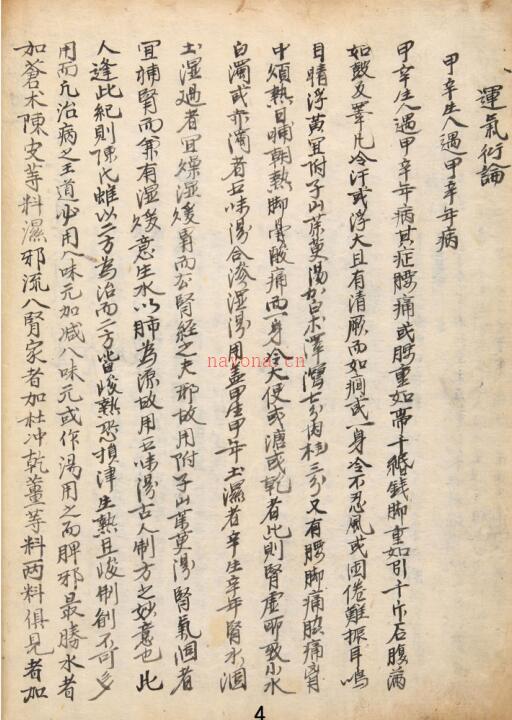 運氣衍論
甲辛生人遇甲辛年病
甲辛生人遇甲辛年病其症腰痛或腰重如帶千緡錢脚重如引千斤石腹滿
如鼓又睾丸冷汗或浮大且有清厥而如痺或一身冷不忍風或困倦難振耳鳴
目睛浮黃宜附子山茱萸湯加白朮澤瀉七分肉桂三分又有腰脚痛脇痛胷
中煩熱日晡朝熱脚骨酸痛而一身冷大便或溏或乾者此則腎虛所致小水
白濁或赤濁者五味湯合滲濕湯用盖甲生甲年土濕者辛生辛年腎水涸
土濕過者宜燥濕煖胃而公腎經之夫邪故用附子山茱萸湯腎氣涸者
宜補腎而兼有濕煖意生水以肺為源故用五味湯古人制方之妙意也此
人逢此紀則陳氏雖以二方為治而二方皆峻熱恐損津生熱且峻制創不可多
用而凢治病之王道必用八味元加減八味元或作湯用之而脾邪最勝水者
加蒼朮陳皮等料濕邪流入腎家者加杜冲乾薑等料两料俱見者加
nayona.cn
4